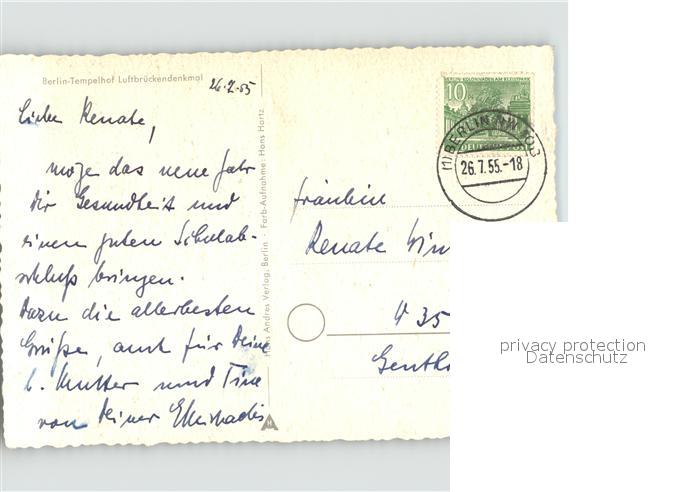 Berlin-Tempelhof Luftbrückendenkmal
26.7.55
Liebe Renate,
möge das neue Jahr
Dir Gesundheit und
einen guten Schulab-
schluß bringen.
Dazu die allerbesten
Grüße, auch für Deine
l. Mutter und Tine
von Deiner
Hans Andres Verlag, Berlin · Farb-Aufnahme: Hans Hartz
BERLIN · KOLONNADEN AM KLEISTPARK
10
DEUTSCHE POST
(1) BERLIN NW
26.7.55.-18
Fräulein
Renate Win
W 35
Genth
privacy protection
Datenschutz